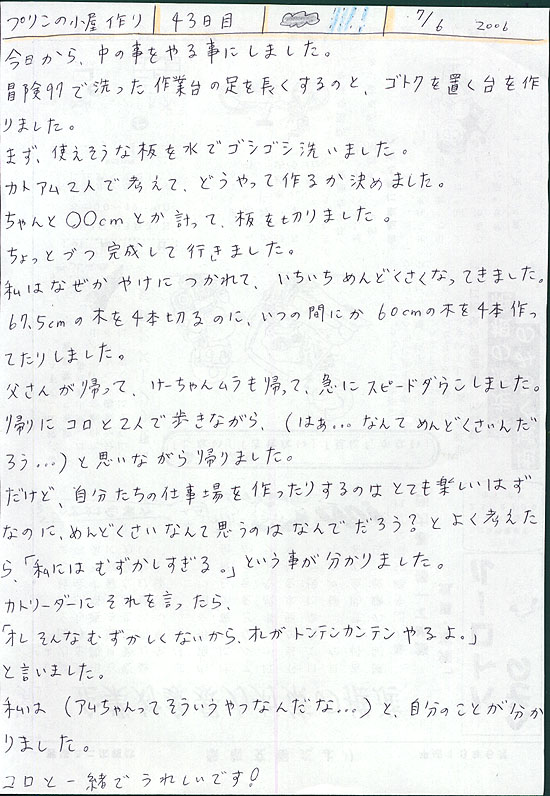 プリンの小屋作り 43日目 7/6 2006
今日から、中の事をやる事にしました。
冒険97で洗った作業台の足を長くするのと、ゴトクを置く台を作
りました。
まず、使えそうな板を水でゴシゴシ洗いました。
カトアム2人で考えて、どうやって作るか決めました。
ちゃんと〇〇cmとか計って、板を切りました。
ちょっとづつ完成して行きました。
私はなぜかやけにつかれて、いちいちめんどくさくなってきました。
67.5cmの木を4本切るのに、いつの間にか60cmの木を4本作っ
てたりしました。
父さんが帰って、けーちゃんムラも帰って、急にスピードダウンしました。
帰りにコロと2人で歩きながら、(はぁ…なんてめんどくさいんだ
ろう…)と思いながら帰りました。
だけど、自分たちの仕事場を作ったりするのはとても楽しいはず
なのに、めんどくさいなんて思うのはなんでだろう?とよく考えた
ら、「私にはむずかしすぎる。」という事が分かりました。
カトリーダーにそれを言ったら、
「オレそんなむずかしくないから、オレがトンテンカンテンやるよ。」
と言いました。
私は(アムちゃんってそういうやつなんだな…)と、自分のことが分か
りました。
コロと一緒でうれしいです!